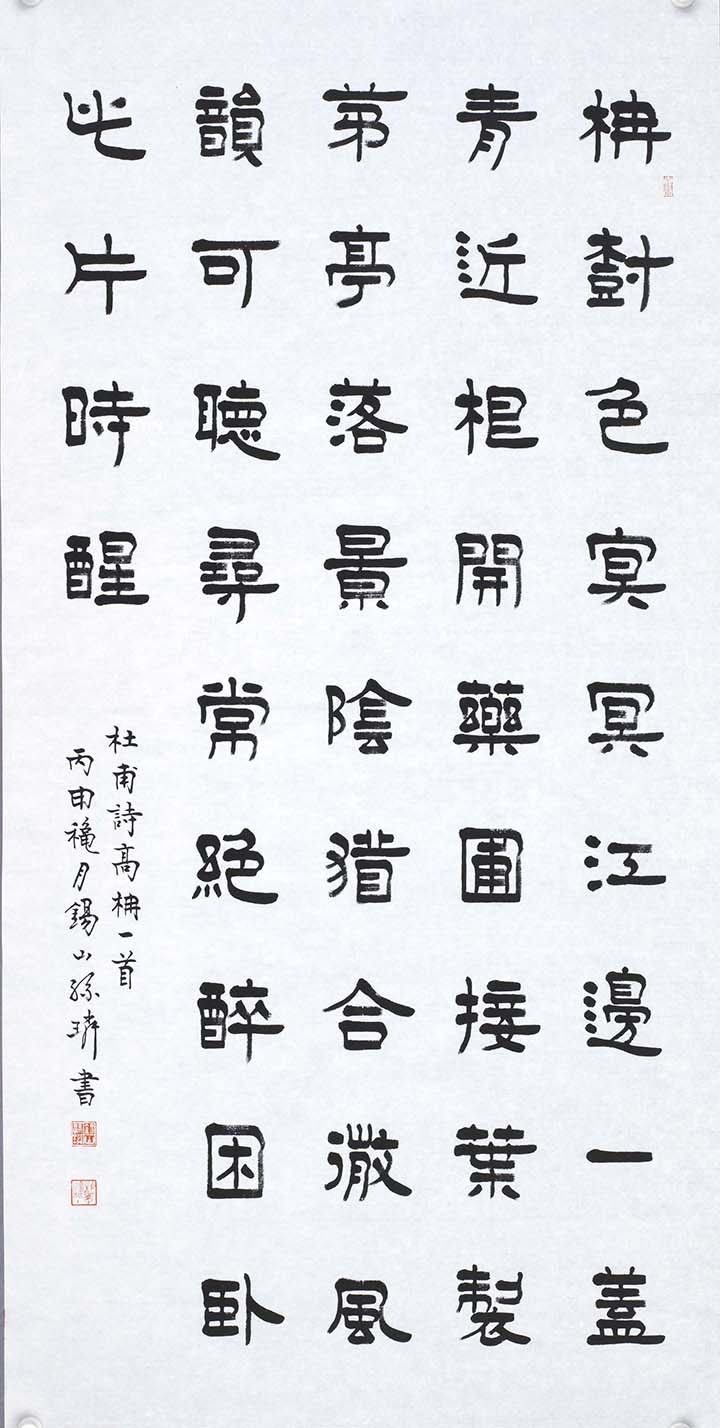 柟樹色冥冥江邊一蓋
青近根開藥圃接葉製
茅亭落景陰猶合微風
韻可聽尋常絕醉困臥
此片時醒
杜甫詩高柟一首
丙申穐月錫山孫璘書